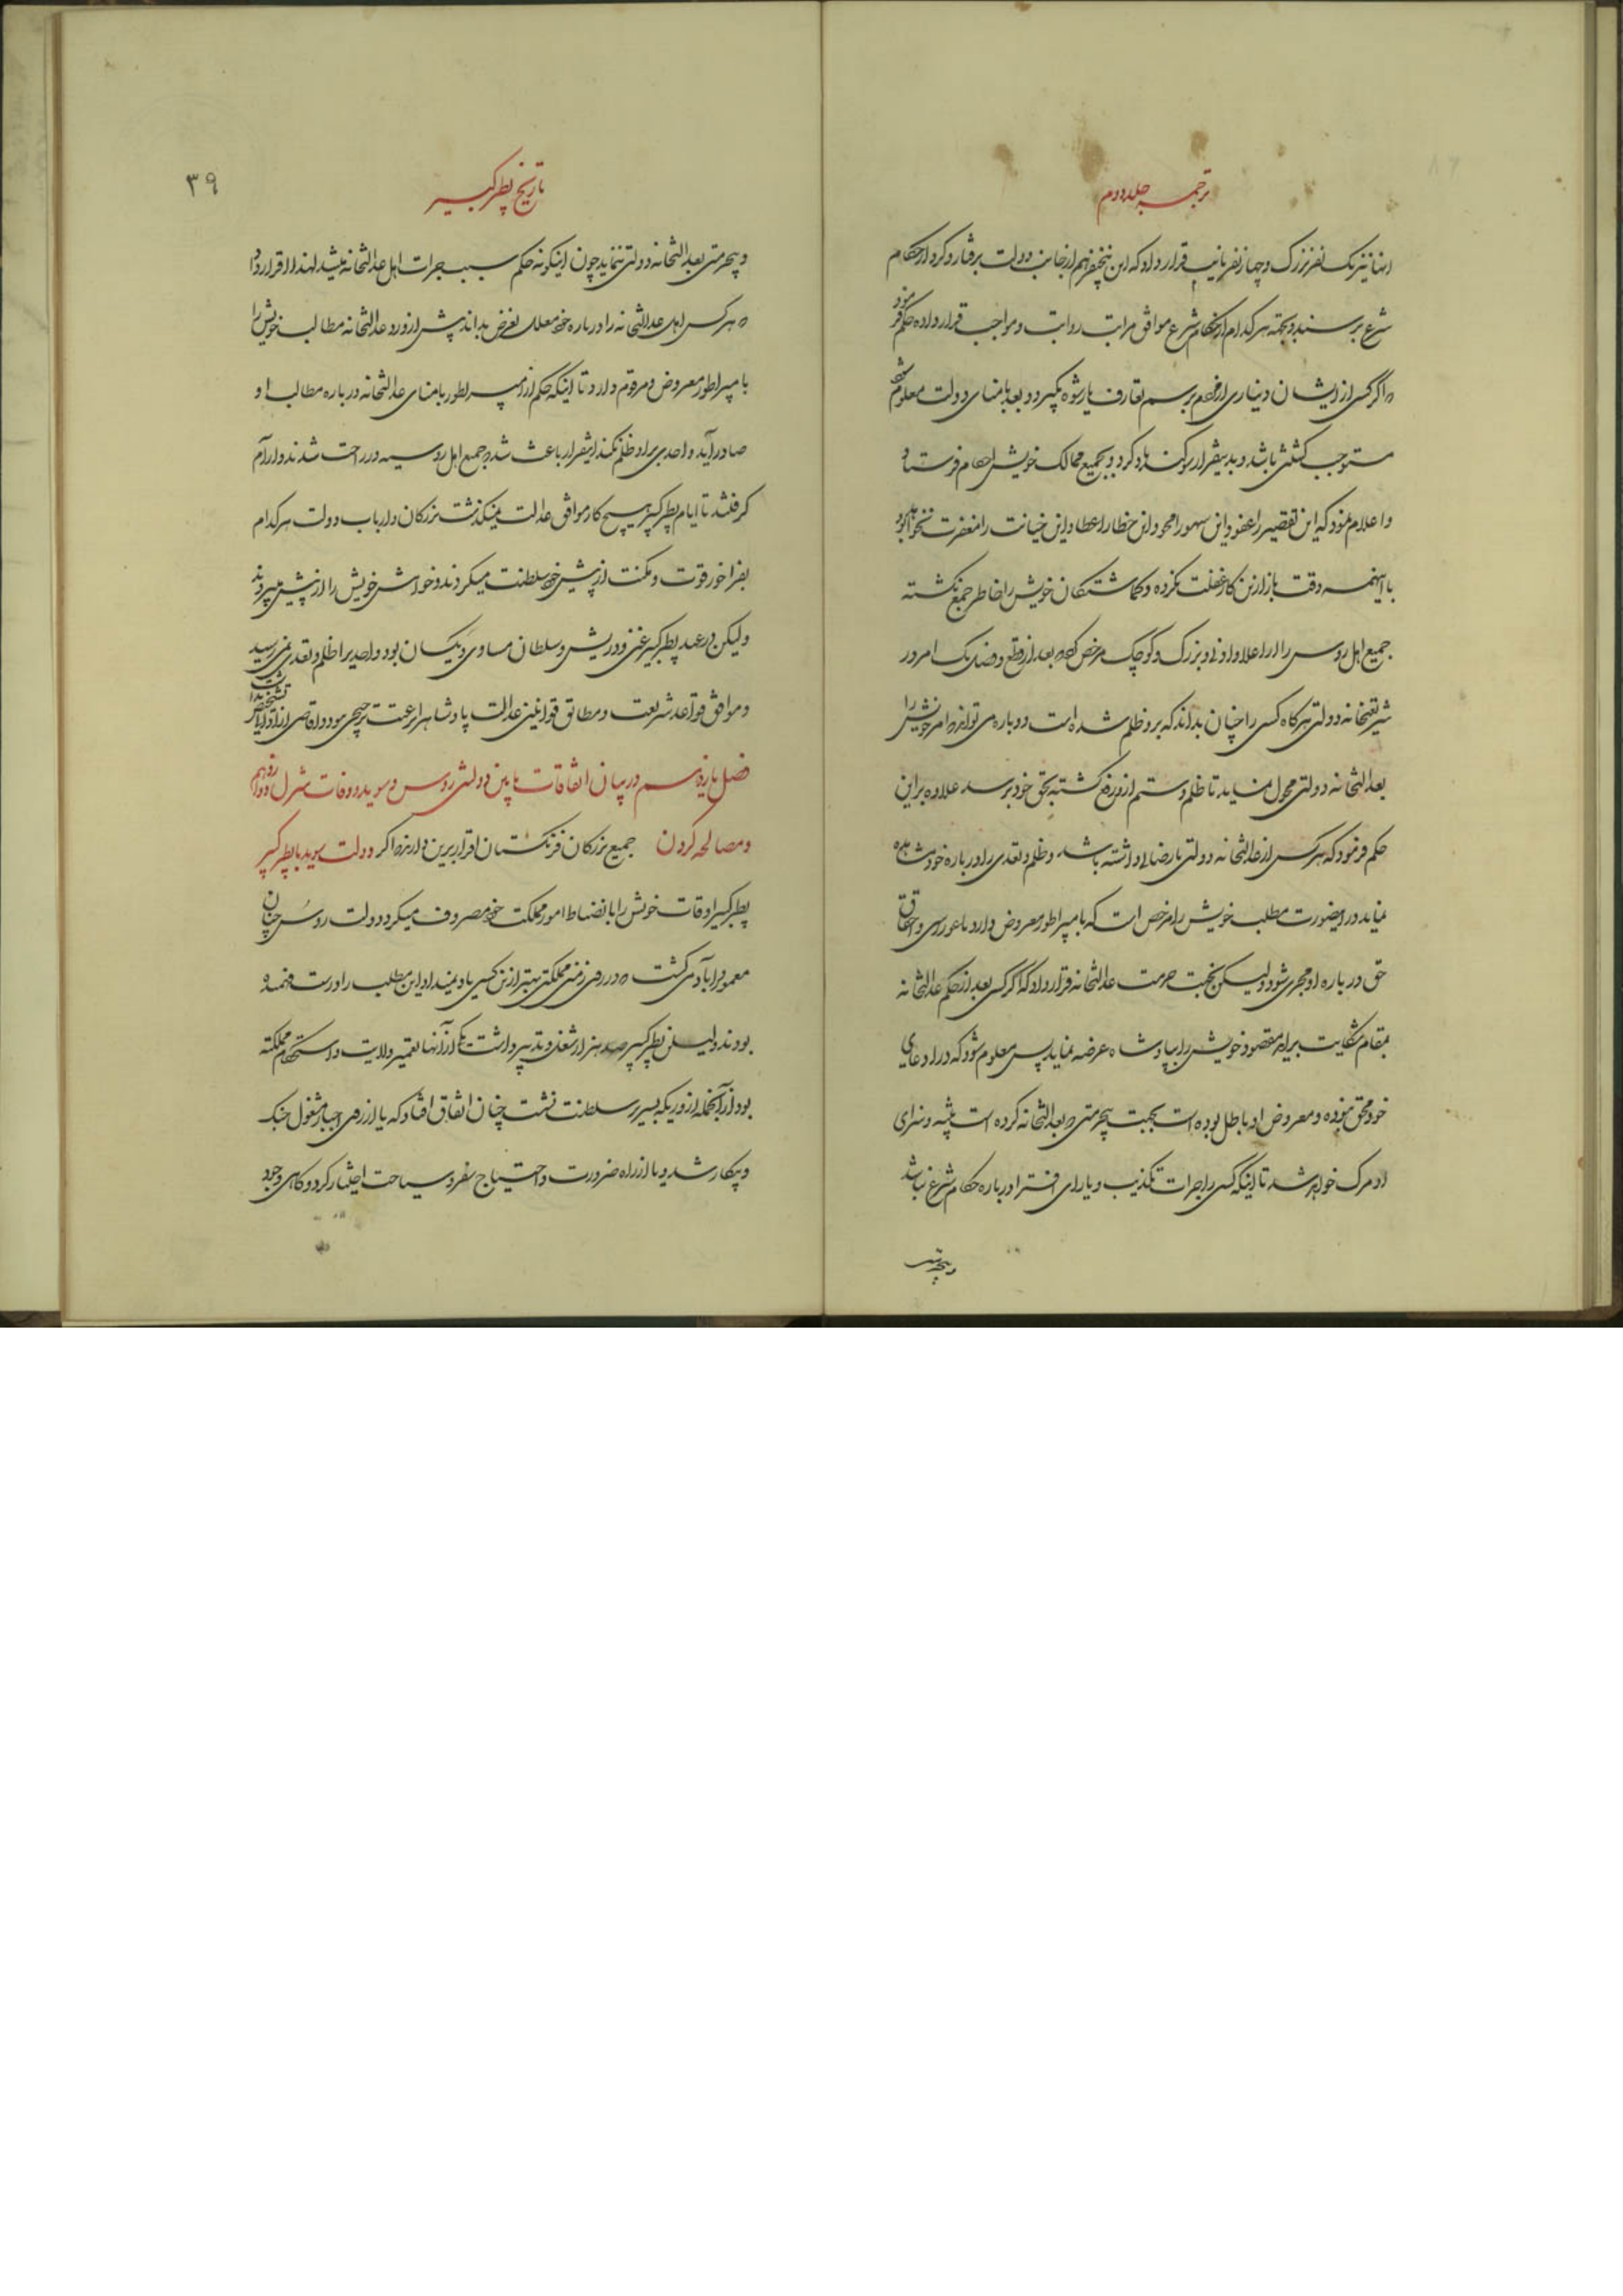 ترجمه جلد دوم
انها نیز یک نفر بزرک و چهار نفر نایب قرار داد که این پنج نفر هم از جانب دولت برفتار و کردار حکام
شرع برسند و بجهته هر کدام از حکام شرع موافق مراتب و مواجب قرار داده حکم فرمود
اگر کسی از ایشان دیناری از مردم برسم تعارف یا رشوه بگیرد و بعد بامنای دولت معلوم شود
مستوجب کشتن باشد و بدینقرار سوکند یاد کرد و بجمیع ممالک خویش احکام فرستاد
و اعلام نمود که این تقصیر را عفو و این سهو را محو و این خطا را عطا و این خیانت را مغفرت نخواهد بود
با اینهمه دقت باز ازین کار غفلت نکرده و کماشتکان خویش را خاطر جمع نکشته
جمیع اهل روس را از اعلا و ادنی و بزرک و کوچک مرخص که بعد از قطع و فصل یک امر در
شریعتخانه دولتی هرکاه کسی را چنان بداند که برو ظلم شده است دوباره می تواند امر خویش را
بعدالتخانه دولتی محول نماید تا ظلم و ستم ازو رفع کشته بحق خود برسد علاوه براین
حکم فرمود که هر کس از عدالتخانه دولتی نارضا داشته باشد و ظلم و تعدی را درباره خود مشاهده
نماید در اینصورت مطلب خویش را مرخص است که بامپراطور معروض دارد تا غوررسی و احقاق
حق درباره او مجری شود ولیکن بجهت حرمت عدالتخانه قرار داد که اگر کسی بعد از حکم عدالتخانه
بمقام شکایت براید مقصود خویش را بپادشاه عرضه نماید پس معلوم شود که در ادعای
خود محق نبوده و معروض او باطل بوده است بجهت بیحرمتی که بعدالتخانه کرده است تنبیه و سزای
او مرک خواهد شد تا اینکه کسی را جرات تکذیب و یارای افترا درباره حکام شرع نباشد
و بیحرمتی
تاریخ پطر کبیر
۳۹
و بیحرمتی بعدالتخانه دولتی ننماید چون اینکونه حکم سبب جرات اهل عدالتخانه میشد لهذا قرار داد
که هر کس اهل عدالتخانه را درباره خود معلل بغرض بداند پیش از ورود عدالتخانه مطالب خویش را
بامپراطور معروض و مرقوم دارد تا اینکه حکم از امپراطور بامنای عدالتخانه درباره مطالب او
صادر آید و احدی براو ظلم نکند اینقرار باعث شد که جمیع اهل روسیه در راحت شدند و آرام
کرفتند تا ایام پطر کبیر هیچ کار موافق عدالت نمیکذشت بزرکان و ارباب دولت هرکدام
بفراخور قوت و مکنت از پیش خود سلطنت میکردند و خواهش خویش را از پیش میبردند
ولیکن در عهد پطر کبیر غنی و درویش و سلطان مساوی و یکسان بود و احدیرا ظلم و تعدی نمی رسید
و موافق قواعد شریعت و مطابق قوانین عدالت پادشاه را بر رعیت ترجیحی نبود و اقاصی از ادانی تشخص نداشت
فصل یازدهم در بیان اتفاقات مابین دولتی روس و سوید و وفات شرل دوازدهم
و مصالحه کردن دولت سوید با پطر کبیر جمیع بزرکان فرنکستان اقرار برین دارند که اکر
پطر کبیر اوقات خویش را بانضباط امور مملکت خود مصروف میکرد دولت روس چنان
معمور و آباد می کشت که در روی زمین مملکتی بهتر ازین کسی یاد نمیداد این مطلب را درست فهمیده
بودند ولیکن پطر کبیر صد هزار شغل و تدبیر داشت یکی از آنها تعمیر ولایت و استحکام مملکت
بود از آنجمله از روزیکه بسریر سلطنت نشست چنان اتفاق افتاد که یا از روی اجبار مشغول جنک
و پیکار شد و یا از راه ضرورت و احتیاج سفر و سیاحت اختیار کرد و کاهی وجود